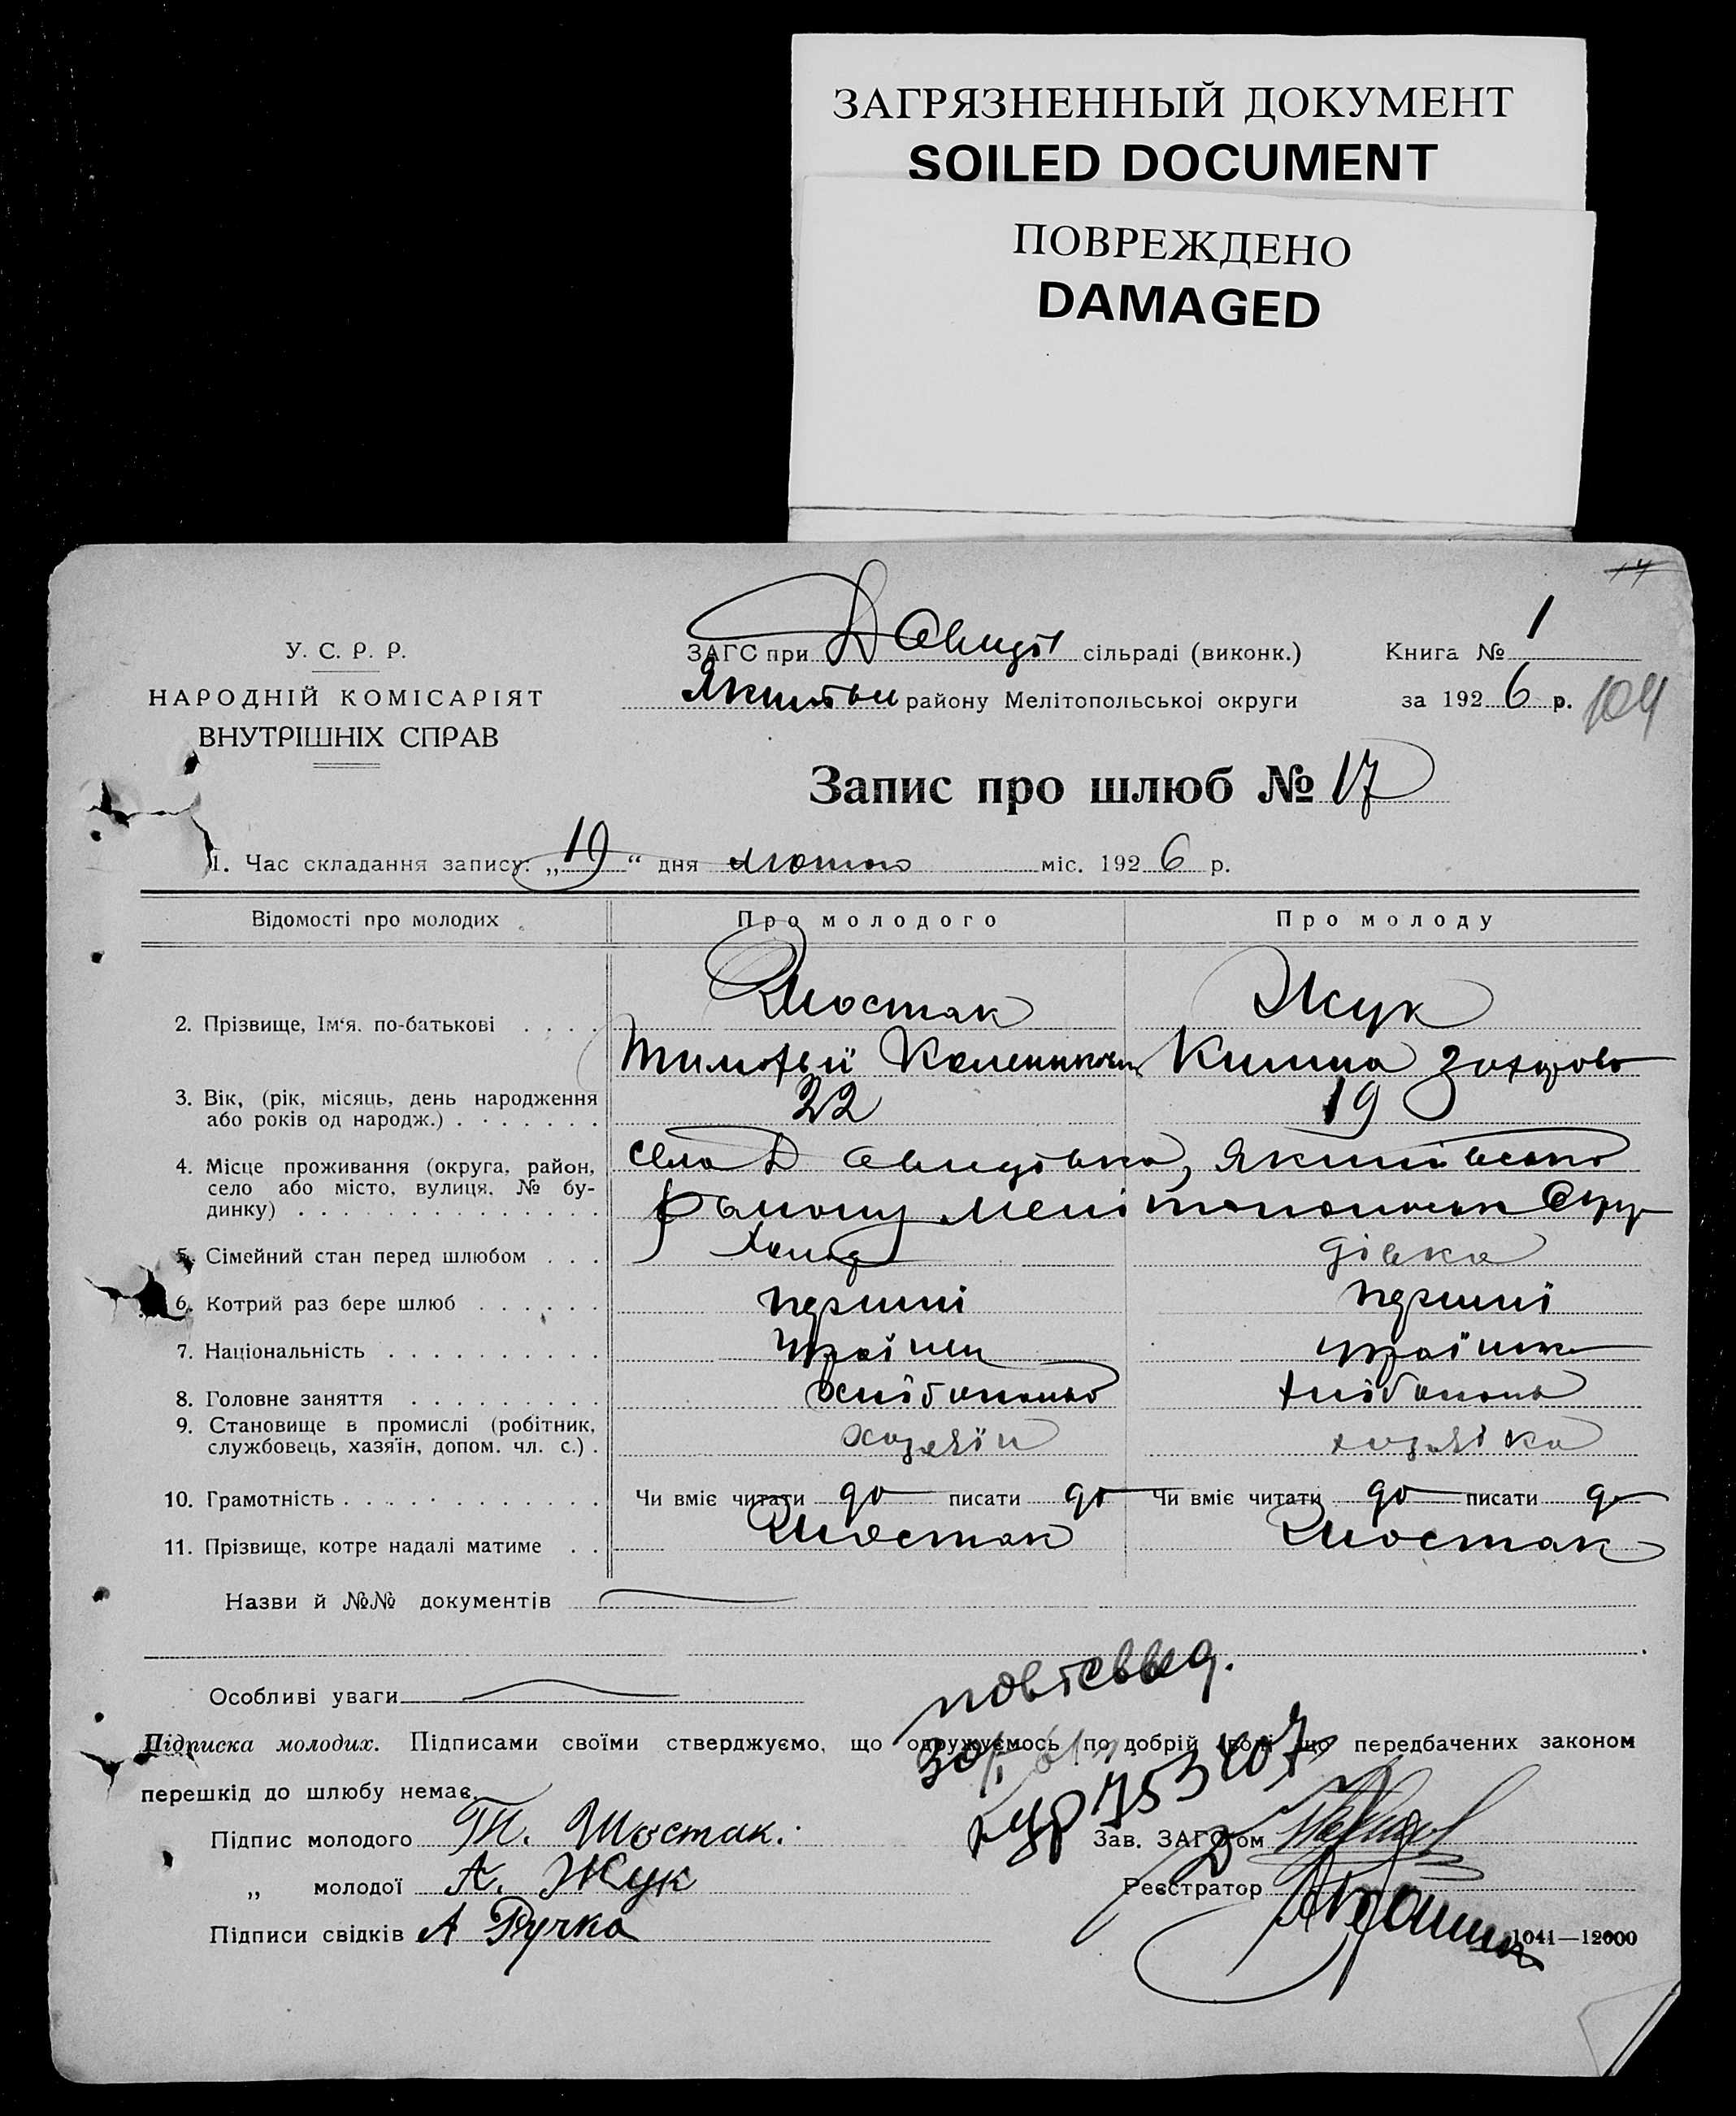 ЗАГРЯЗНЕННЫЙ ДОКУМЕНТ
SOILED DOCUMENT
ПОВРЕЖДЕНО
DAMAGED
У. С. Р. Р.
НАРОДНІЙ КОМІСАРІЯТ
ВНУТРІШНІХ СПРАВ
ЗАГС при Давидів сільраді (виконк.)
району Мелітопольської округи
Книга № 1
за 1926 р.
104
Запис про шлюб № 17
1. Час складання запису: „19“ дня лютого міс. 1926 р.
Відомості про молодих Про молодого Про молоду
2. Прізвище, Ім'я, по-батькові . . . . Шостак Жук
Тимофій
3. Вік, (рік, місяць, день народження
або років од народж.) . . . . . . . 22 19
4. Місце проживання (округа, район,
село або місто, вулиця, № бу-
динку) . . . . . . . . . . . . . .
село Давидівка, Якимівсько
району Мелітопольськ Окру
5. Сімейний стан перед шлюбом . . . дівка
6. Котрий раз бере шлюб . . . . . . перший перший
7. Національність . . . . . . . . . .
8. Головне заняття . . . . . . . . .
9. Становище в промислі (робітник,
службовець, хазяїн, допом. чл. с.) . хазяїн хазяйка
10. Грамотність . . . . . . . . . . . . Чи вміє читати до писати до Чи вміє читати до писати до
11. Прізвище, котре надалі матиме . . Шостак Шостак
Назви й №№ документів
Особливі уваги
Підписка молодих. Підписами своїми стверджуємо, що одружуємось по добрій волі що передбачених законом
перешкід до шлюбу немає.
Підпис молодого Т. Шостак.
„ молодої А. Жук
Підписи свідків А Ручка
Зав. ЗАГС'ом
Реєстратор
1041—12000